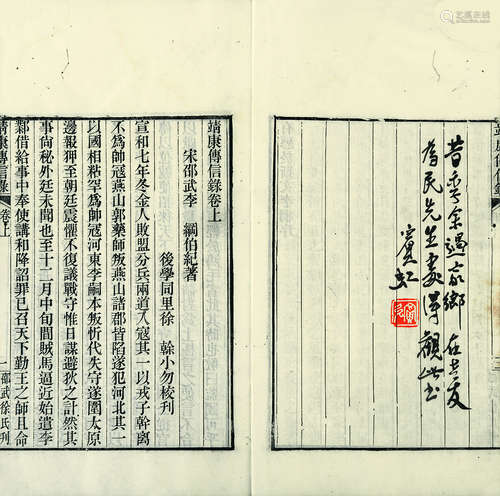 靖康傳信錄
昔年余過家鄉在老友
為民先生處得觀此書
賓虹
靖康傳信錄卷上
宋邵武李 綱伯紀著
後學同里徐 榦小勿校刊
宣和七年冬金人敗盟分兵兩道入寇其一以戎子幹離
不為帥寇燕山郭藥師叛燕山諸郡皆陷遂犯河北其一
以國相粘罕為帥寇河東李嗣本叛忻代失守遂圍太原
邊報狎至朝廷震懼不復議戰守惟日謀避狄之計然其
事尚秘外廷未聞也至十二月中旬間賊馬逼近始遣李
鄴借給事中奉使講和降詔罪己召天下勤王之師且命
靖康傳信錄 卷上 一 邵武徐氏刊